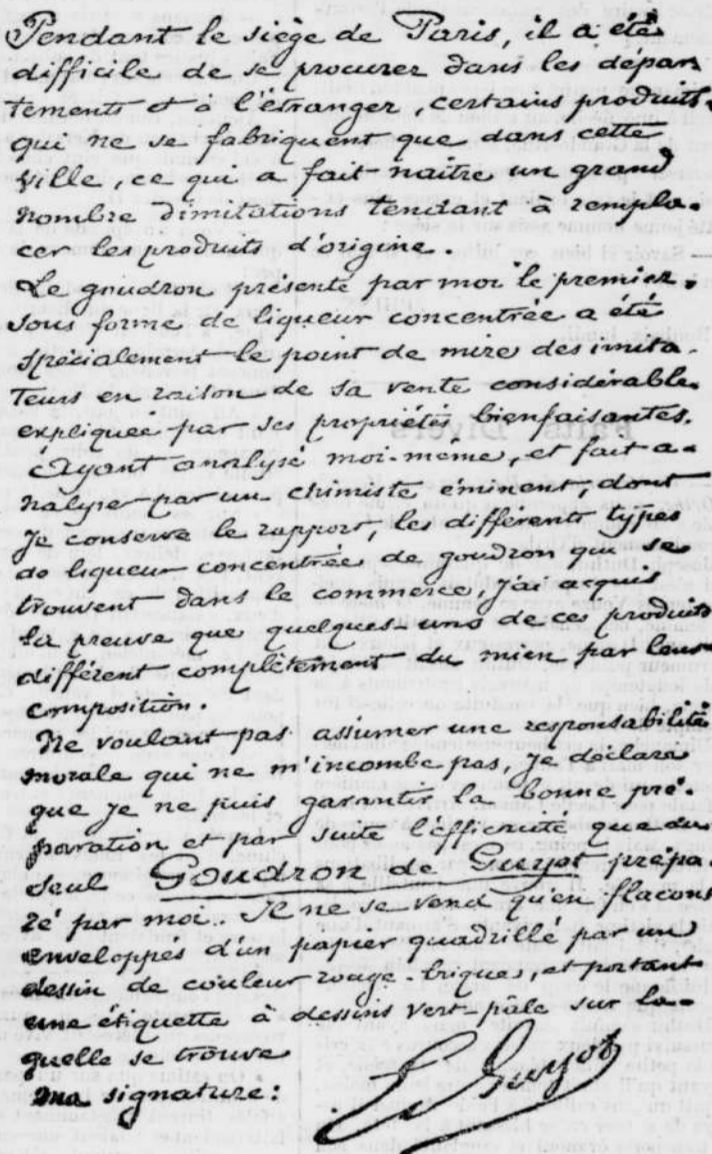 Pendant le siège de Paris, il a été
difficile de se procurer dans les dépar
tements et à l'étranger, certains produits
qui ne se fabriquent que dans cette
ville, ce qui a fait naître un grand
nombre d'imitations tendant à rempla-
cer les produits d'origine.
Le goudron présenté par moi le premier,
sous forme de liqueur concentrée a été
spécialement le point de mire des imita-
teurs en raison de sa vente considérable
expliquée par ses propriétés bienfaisantes.
Ayant analysé moi-même, et fait a-
nalyser par un chimiste éminent, dont
je conserve le rapport, les différents types
de liqueur concentrée de goudron qui se
trouvent dans le commerce, j'ai acquis
la preuve que quelques-uns de ces produits
différent complètement du mien par leur
composition.
Ne voulant pas assumer une responsabilité
morale qui ne m'incombe pas, je déclare
que je ne puis garantir la bonne pré-
paration et par suite l'efficacité que du
seul Goudron de Guyot prépa-
ré par moi. Il ne se vend qu'en flacons
enveloppés d'un papier quadrillé par un
dessin de couleur rouge brique, et portant
une étiquette à dessins vert-pâle sur la-
quelle se trouve
ma signature:
Guyot